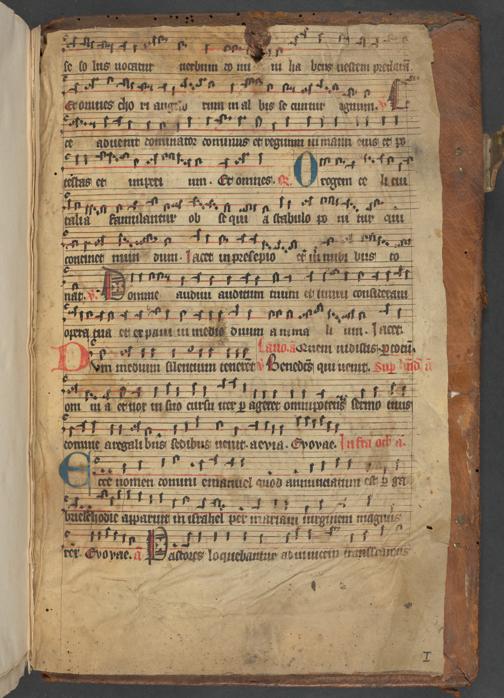 se so lus uocatur uerbum do mi ni ha bens uestem preclaram
Et omnes cho ri angelo rum in al bis se cuntur agnum. v. E
cce aduenit dominator dominus et regnum in manu eius et po
testas et imperi um. Et omnes. R. O regem ce li cui
talia famulantur ob se qui a stabulo po ni tur qui
continet mun dum. Iacet in presepio et in nubi bus to
nat. v. Domine audiui auditum tuum et timui consideraui
opera tua et expaui in medio duum anima li um. Iacet.
Quem uidistis pastores
Dum medium silentium teneret v Benedictus qui uenit.
om ni a et nox in suo cursu iter p ageret omnipotens sermo tuus
domine a regali bus sedibus uenit. aeuia. Evovae. Infra oct. a.
Ecce nomen domini emanuel quod annunciatum est p ga
brielem hodie apparuit in israhel per mariam uirginem magnus
rex. Evovae. a Pastores loquebantur ad inuicem transeamus
I